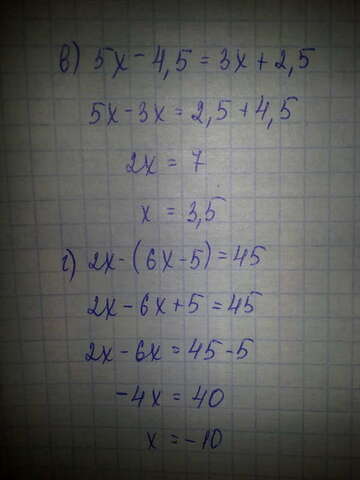 в) 5x - 4,5 = 3x + 2,5
5x - 3x = 2,5 + 4,5
2x = 7
x = 3,5
г) 2x - (6x - 5) = 45
2x - 6x + 5 = 45
2x - 6x = 45 - 5
-4x = 40
x = -10